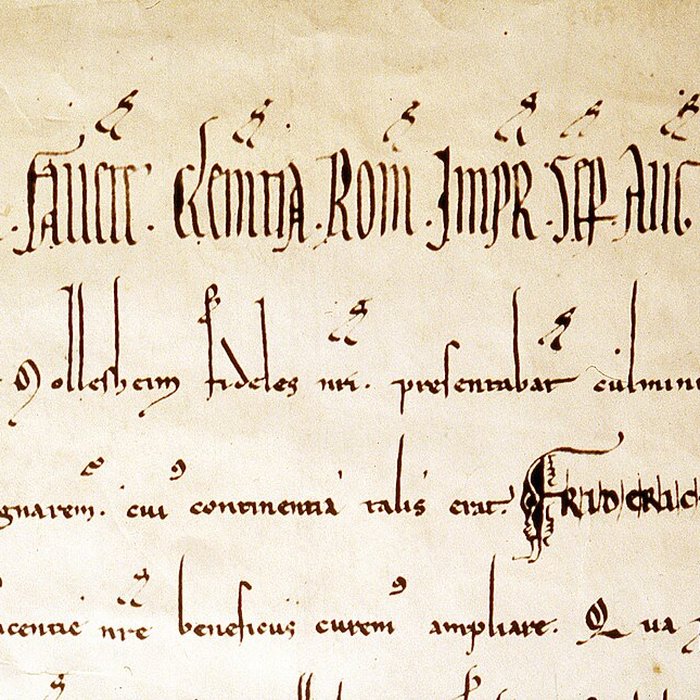 . favete . clemtia . Rom . Impr . Sep . Aug
Mollesheim fideles nri . presentabat culmin
gnarem . cui continentia talis erat . FRIDERIC
centie nre beneficiis curem ampliare . Qua